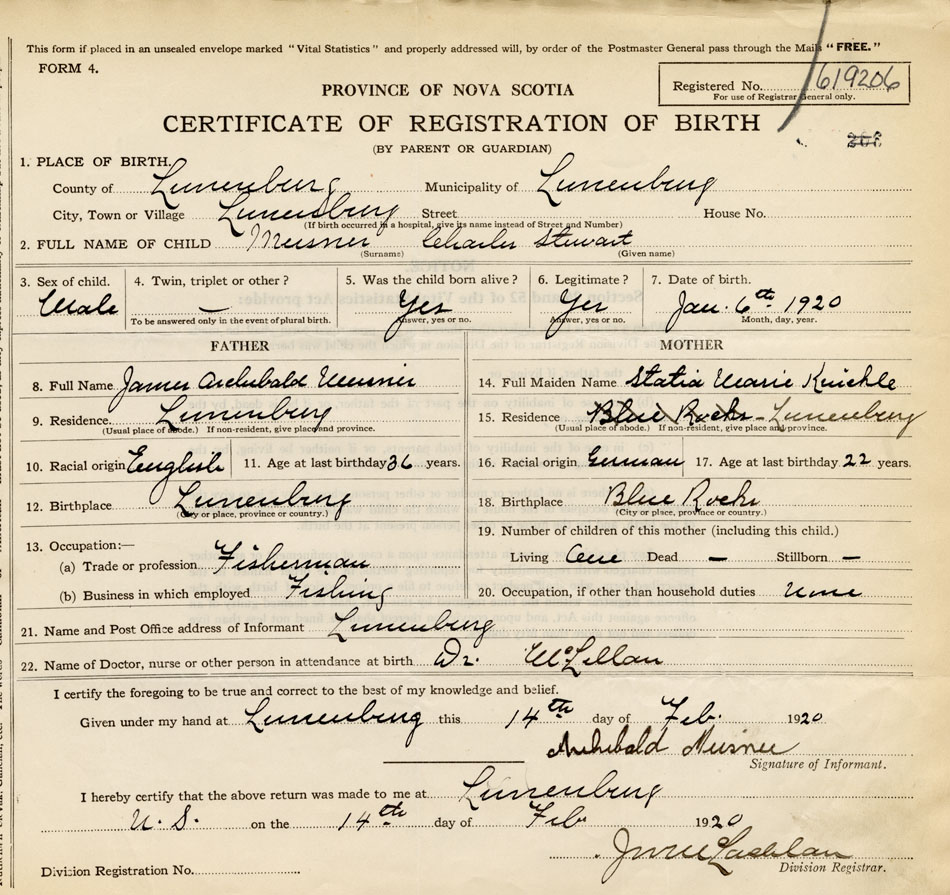 This form if placed in an unsealed envelope marked "Vital Statistics" and properly addressed will, by order of the Postmaster General pass through the Mails "FREE."
FORM 4.
Registered No. 619206
For use of Registrar General only.
PROVINCE OF NOVA SCOTIA
CERTIFICATE OF REGISTRATION OF BIRTH
(BY PARENT OR GUARDIAN)
1. PLACE OF BIRTH.
County of Lunenburg Municipality of Lunenburg
City, Town or Village Lunenburg Street House No.
(If birth occurred in a hospital, give its name instead of Street and Number)
2. FULL NAME OF CHILD Meisner Charles Stewart
(Surname) (Given name)
3. Sex of child. 4. Twin, triplet or other? 5. Was the child born alive? 6. Legitimate? 7. Date of birth.
Male — Yes Yes Jan. 6th 1920
To be answered only in the event of plural birth. Answer, yes or no. Answer, yes or no. Month, day, year.
FATHER MOTHER
8. Full Name James Archibald Meisner 14. Full Maiden Name Statia Marie Knickle
9. Residence Lunenburg 15. Residence Blue Rocks - Lunenburg
(Usual place of abode.) If non-resident, give place and province. (Usual place of abode.) If non-resident, give place and province.
10. Racial origin English 11. Age at last birthday 36 years. 16. Racial origin German 17. Age at last birthday 22 years.
12. Birthplace Lunenburg 18. Birthplace Blue Rocks
(City or place, province or country.) (City or place, province or country.)
13. Occupation:— 19. Number of children of this mother (including this child.)
(a) Trade or profession Fisherman Living One Dead — Stillborn —
(b) Business in which employed Fishing 20. Occupation, if other than household duties None
21. Name and Post Office address of Informant Lunenburg
22. Name of Doctor, nurse or other person in attendance at birth Dr. McLellan
I certify the foregoing to be true and correct to the best of my knowledge and belief.
Given under my hand at Lunenburg this 14th day of Feb. 1920
Archibald Meisner
Signature of Informant.
I hereby certify that the above return was made to me at Lunenburg
N.S. on the 14th day of Feb 1920
Division Registrar.
Division Registration No.